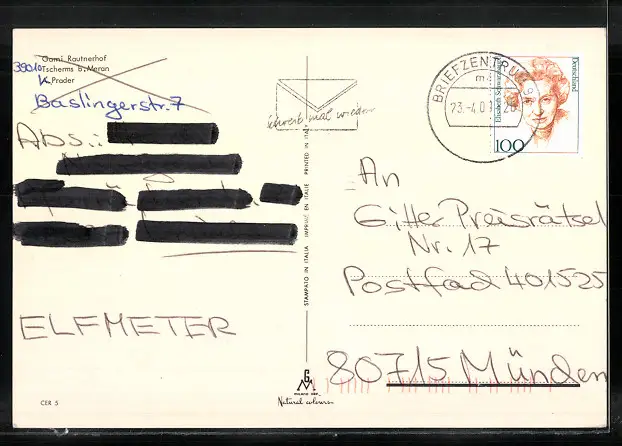 Garni Rautnerhof
39010 Tscherms b. Meran
K. Prader
Baslingerstr. 7
Abs.:
ELFMETER
CER 5
Schreib mal wieder
STAMPATO IN ITALIA IMPRIMÉ EN ITALIE PRINTED IN ITALY
GM
MILANO
Natural colours
BRIEFZENTRUM
23.-4.01
Elisabeth Schwarzhaupt
Deutschland
100
An
Gitter Preisrätsel
Nr. 17
Postfach 401525
80715 München